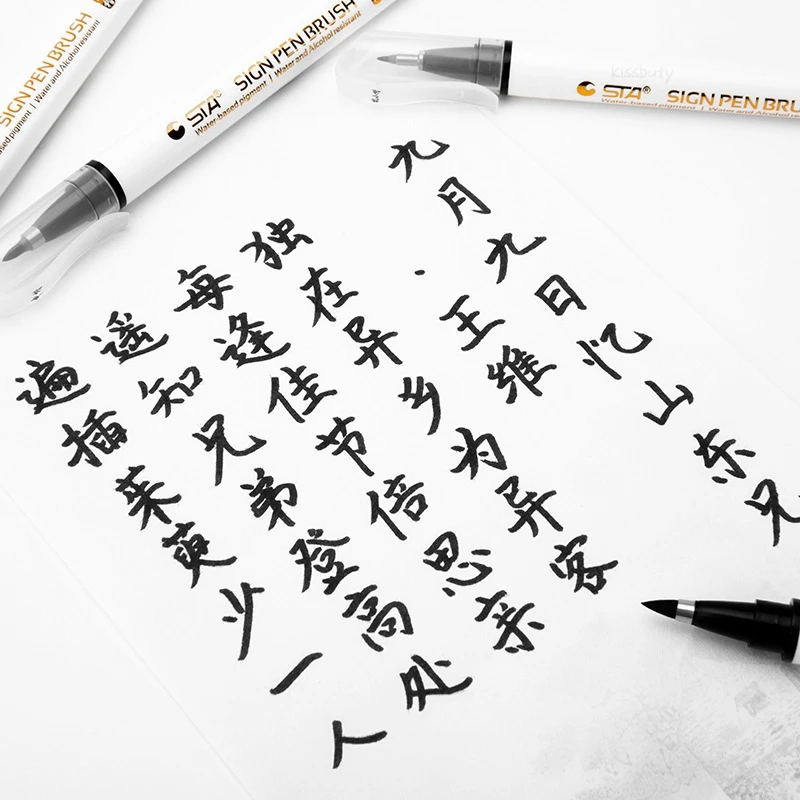 SIGN PEN BRUSH
based pigment | Water and Alcohol resistant
STA® SIGN PEN BRUSH
Water-based pigment | Water and Alcohol resistant
kissbuty
STA® SIGN PEN BRU
Water-based pigment |
九月九日忆山东兄
·王维
独在异乡为异客
每逢佳节倍思亲
遥知兄弟登高处
遍插茱萸少一人